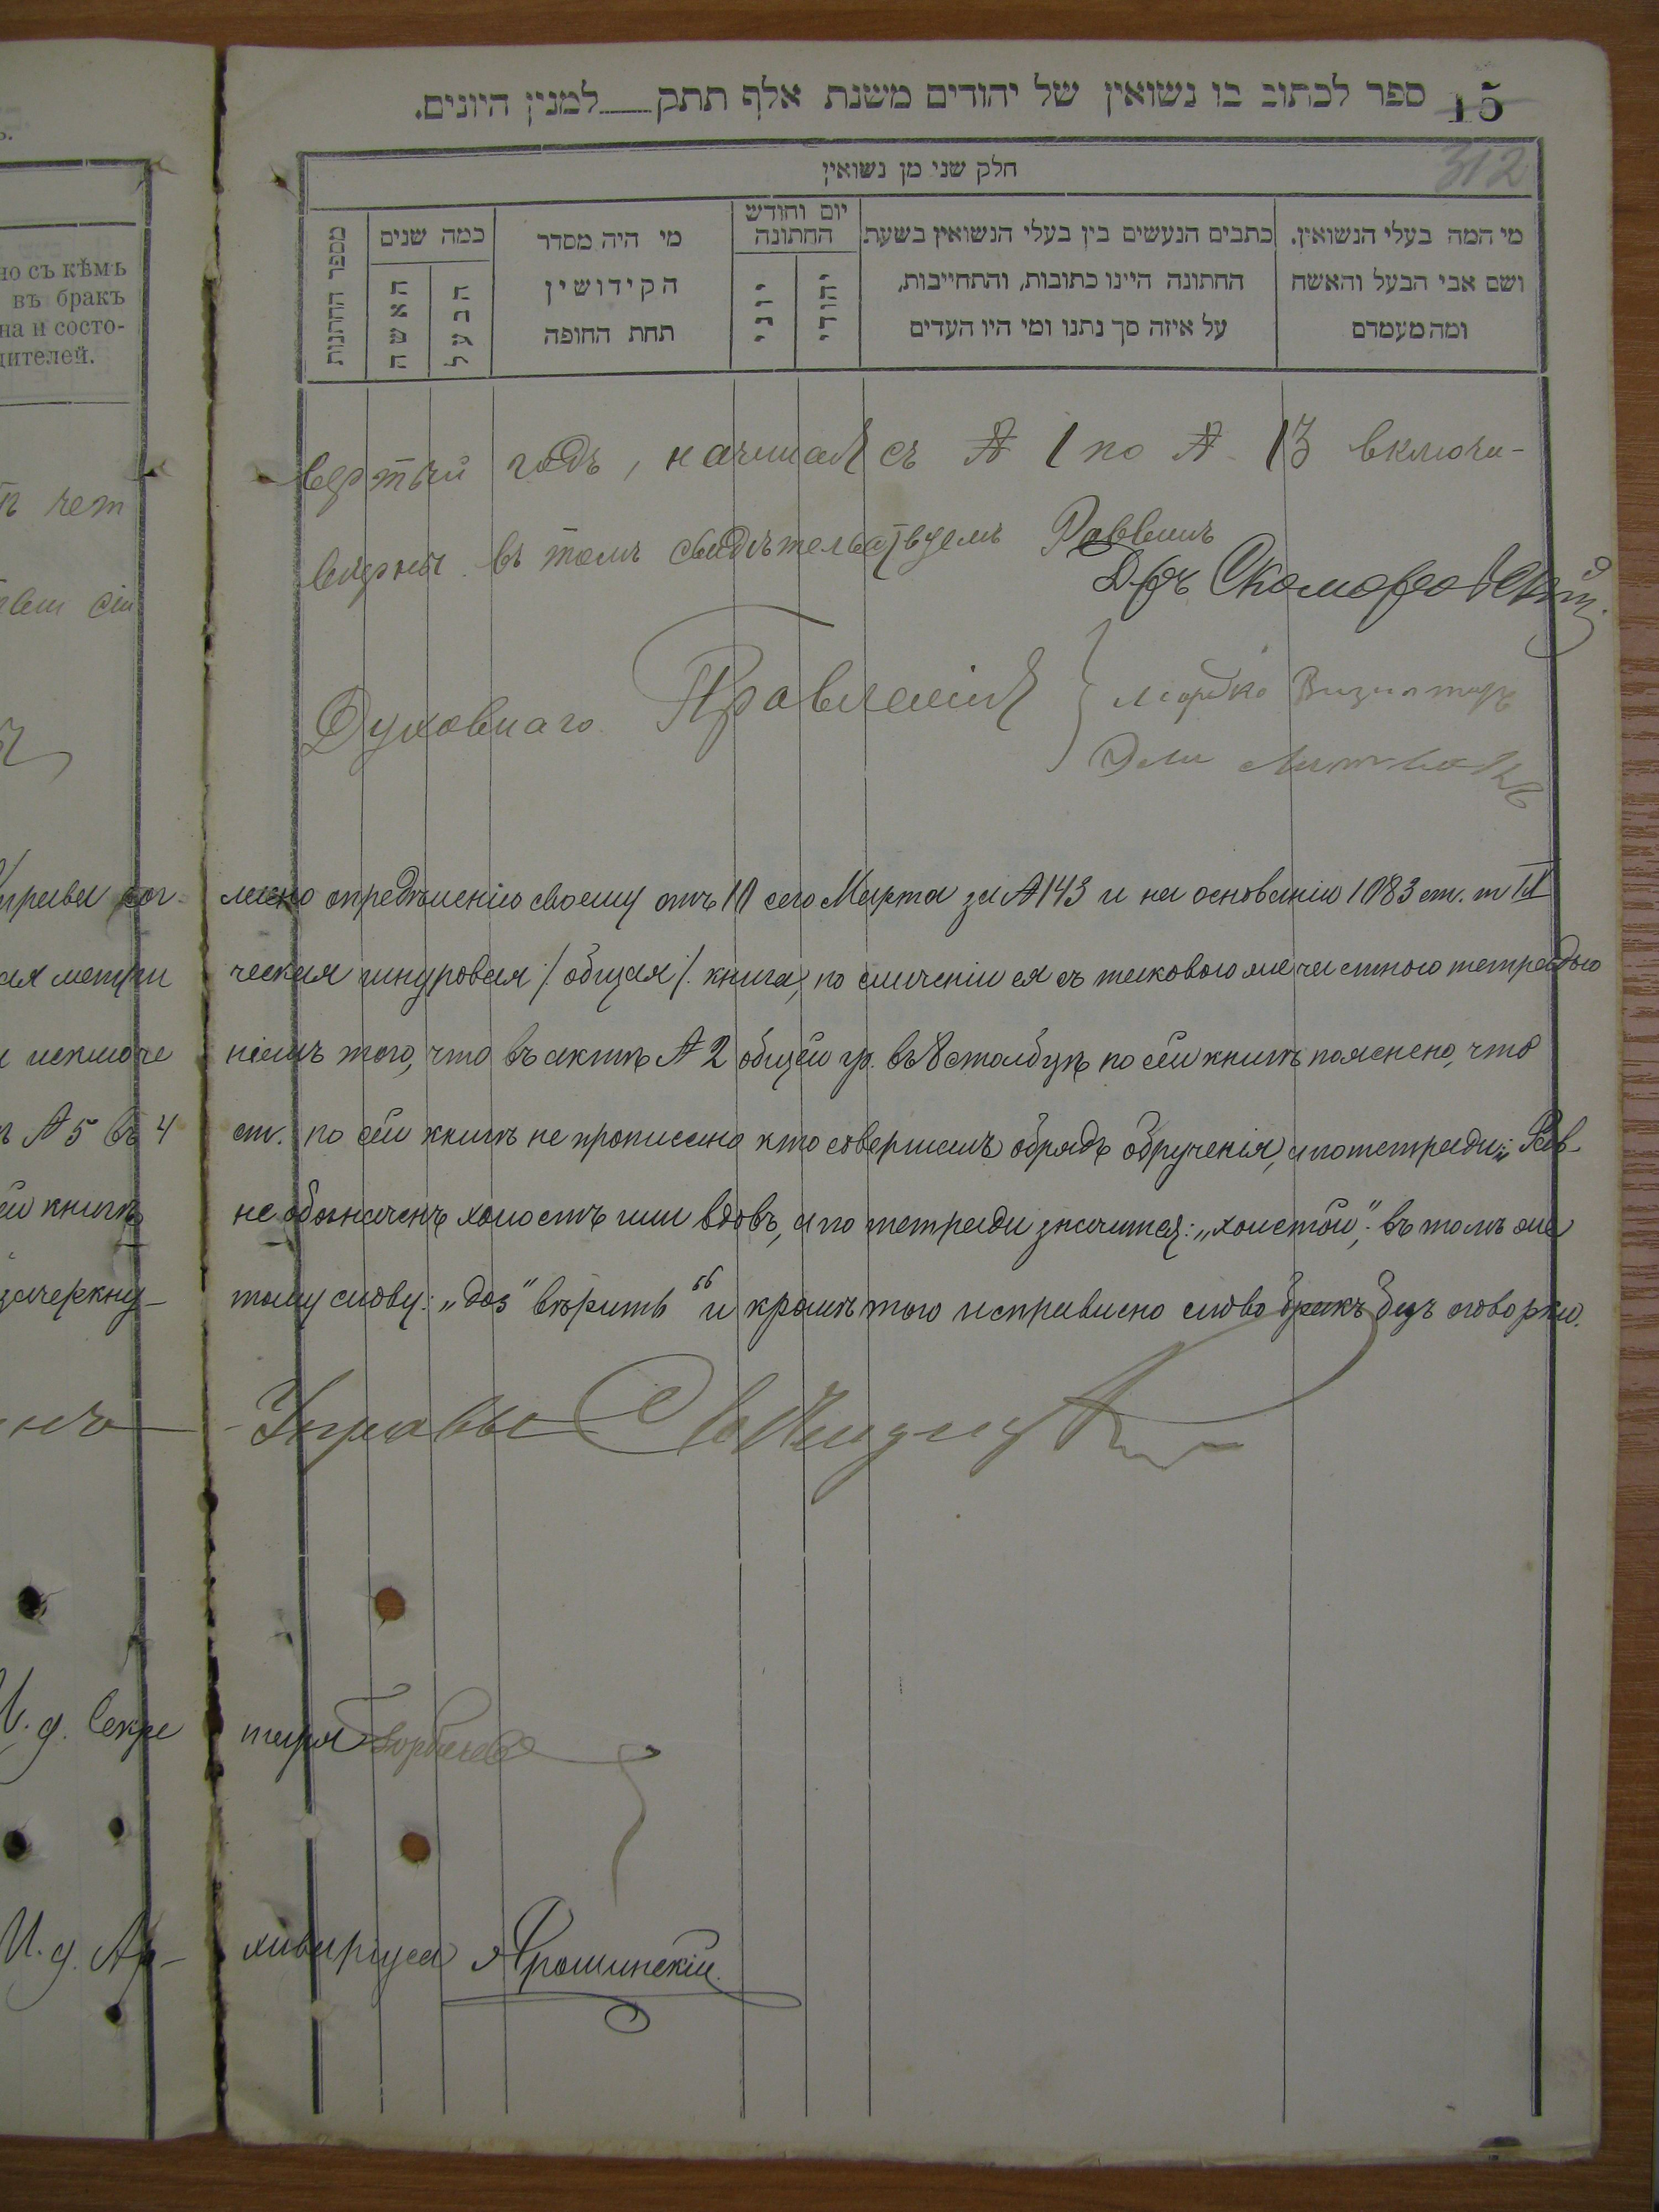 15 ספר לכתוב בו נשואין של יהודים משנת אלף תתק למנין היונים.
312
חלק שני מן נשואין
מי המה בעלי הנשואין. ושם אבי הבעל והאשה ומה מעמדם
כתבים הנעשים בין בעלי הנשואין בשעת החתונה היינו כתובות, והתחייבות, על איזה סך נתנו ומי היו העדים
יום וחודש החתונה
יהודי
יוני
מי היה מסדר הקידושין תחת החופה
כמה שנים
הבעל
האשה
מספר החתונות
но съ кѣмъ
въ бракъ
на и состо-
дителей.
вертый годъ, начиная съ № 1 по № 13 включи-
чет
вѣрны въ томъ свидѣтельствуемъ Раввинъ
Д-ръ Скоморовскій.
сіи
Духовнаго Правленія
Мордко
Эли Литвакъ
ласно опредѣленію своему отъ 10 сего Марта за № 143 и на основаніи 1083 ст. т IX
ческая шнуровая /. общая /. книга, по сличеніи ея съ таковою же частною тетрадью
исключе
ніемъ того, что въ актѣ № 2 общей гр. въ 8 столбцѣ по сей книгѣ пояснено, что
№ 5 въ 4
ст. по сей книгѣ не прописано кто совершалъ обрядъ обрученія, а по тетради: „Рав-
книгѣ
не обозначенъ холостъ или вдовъ, а по тетради значится: „холостой", въ томъ же
зачеркну-
тому слову: „доз" вѣрить и кромѣ того исправлено слово бракъ безъ оговорки.
Управы
И. д. Секре
таря
И. д. Ар-
хиваріуса Ярошинскій.